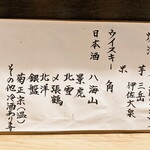 焼酎 芋 三岳
伊佐大泉
米
ウイスキー 角
日本酒 八海山
景虎
〆張鶴
北雪
北洋
銀盤
菊正宗(温)
その他冷酒あり〼